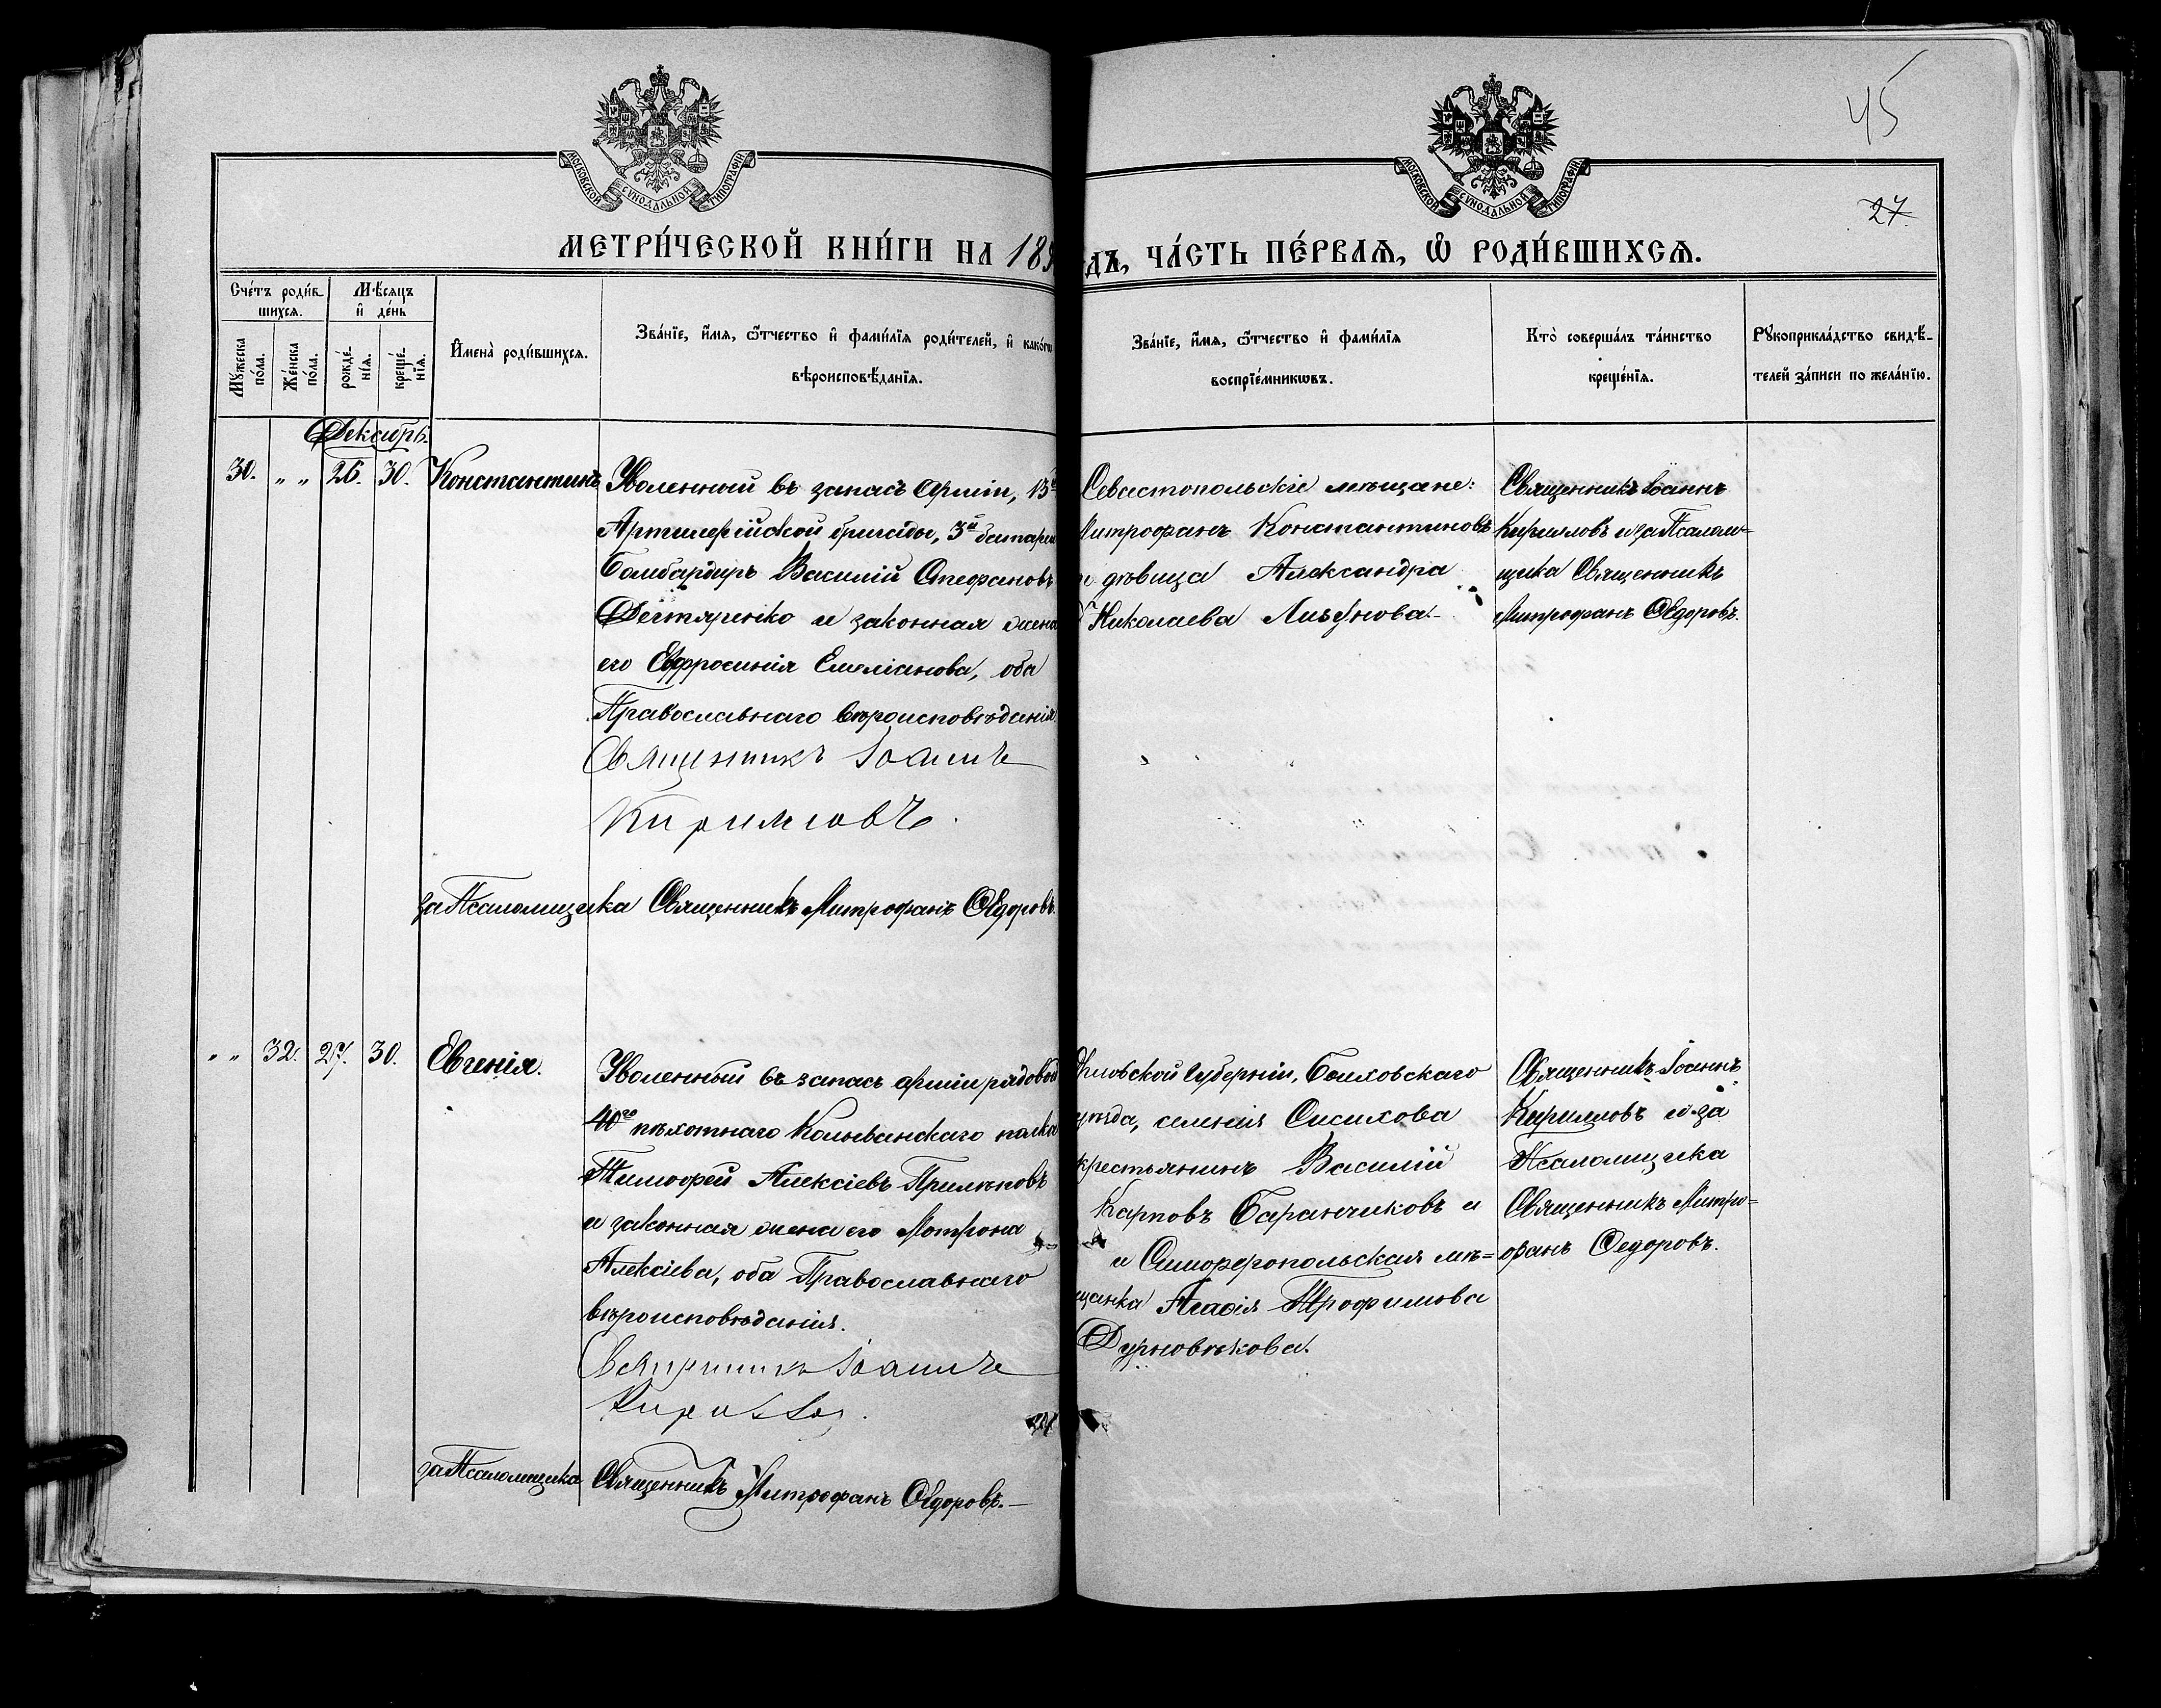 45
27.
МОСКОВСКОЙ СѴНОДАЛЬНОЙ ТИПОГРАФІИ
МОСКОВСКОЙ СѴНОДАЛЬНОЙ ТИПОГРАФІИ
МЕТРИ́ЧЕСКОЙ КНИ́ГИ НА 189
ДЪ, ЧА́СТЬ ПЕ́РВАѦ, Ѡ҆ РОДИ́ВШИХСѦ.
Сче́тъ роди́в-
шихсѧ.
Мѣ́сѧцъ
и҆ де́нь
Мꙋ́жеска
по́ла.
Же́нска
по́ла.
рожде́-
нїѧ.
креще́-
нїѧ.
И҆мена̀ роди́вшихсѧ.
Зва́нїе, и҆́мѧ, ѻ҆́тчество и҆ фами́лїѧ роди́телей, и҆ како́гѡ
вѣроисповѣ́данїѧ.
Зва́нїе, и҆́мѧ, ѻ҆́тчество и҆ фами́лїѧ
воспрїе́мникѡвъ.
Кто̀ соверша́лъ та́инство
креще́нїѧ.
Рꙋкоприкла́дство свидѣ́-
телей за́писи по жела́нїю.
Декабрь.
30. " " 26. 30. Константинъ
Уволенный въ запасъ Арміи, 13й
Артилерійской бригады, 3й батареи
Бомбардиръ Василій Стефановъ
Дегтяренко и законная жена
его Евфросинія Емеліанова, оба
Православнаго вѣроисповѣданія.
Священникъ Іоаннъ
Кирилловъ.
за Псаломщика Священникъ Митрофанъ Ѳедоровъ.
Севастопольскіе мѣщане:
Митрофанъ Константиновъ
и дѣвица Александра
Николаева
Священникъ Іоаннъ
Кирилловъ и за Псалом=
щика Священникъ
Митрофанъ Ѳедоровъ.
" " 32. 27. 30. Евгенія.
Уволенный въ запасъ арміи рядовой
40го пѣхотнаго Колыванскаго полка
Тимоѳей Алексіевъ
и законная жена его Матрона
Алексіева, оба Православнаго
вѣроисповѣданія.
Священникъ Іоаннъ
Кирилловъ.
за Псаломщика Священникъ Митрофанъ Ѳедоровъ.—
Орловской губерніи, Болховскаго
уѣзда, селенія
крестьянинъ Василій
Карповъ Баранчиковъ и
и Симферопольская мѣ=
щанка Агаѳія Трофимова
Дурновѣкова.
Священникъ Іоаннъ
Кирилловъ и за
Псаломщика
Священникъ Митро=
фанъ Ѳедоровъ.